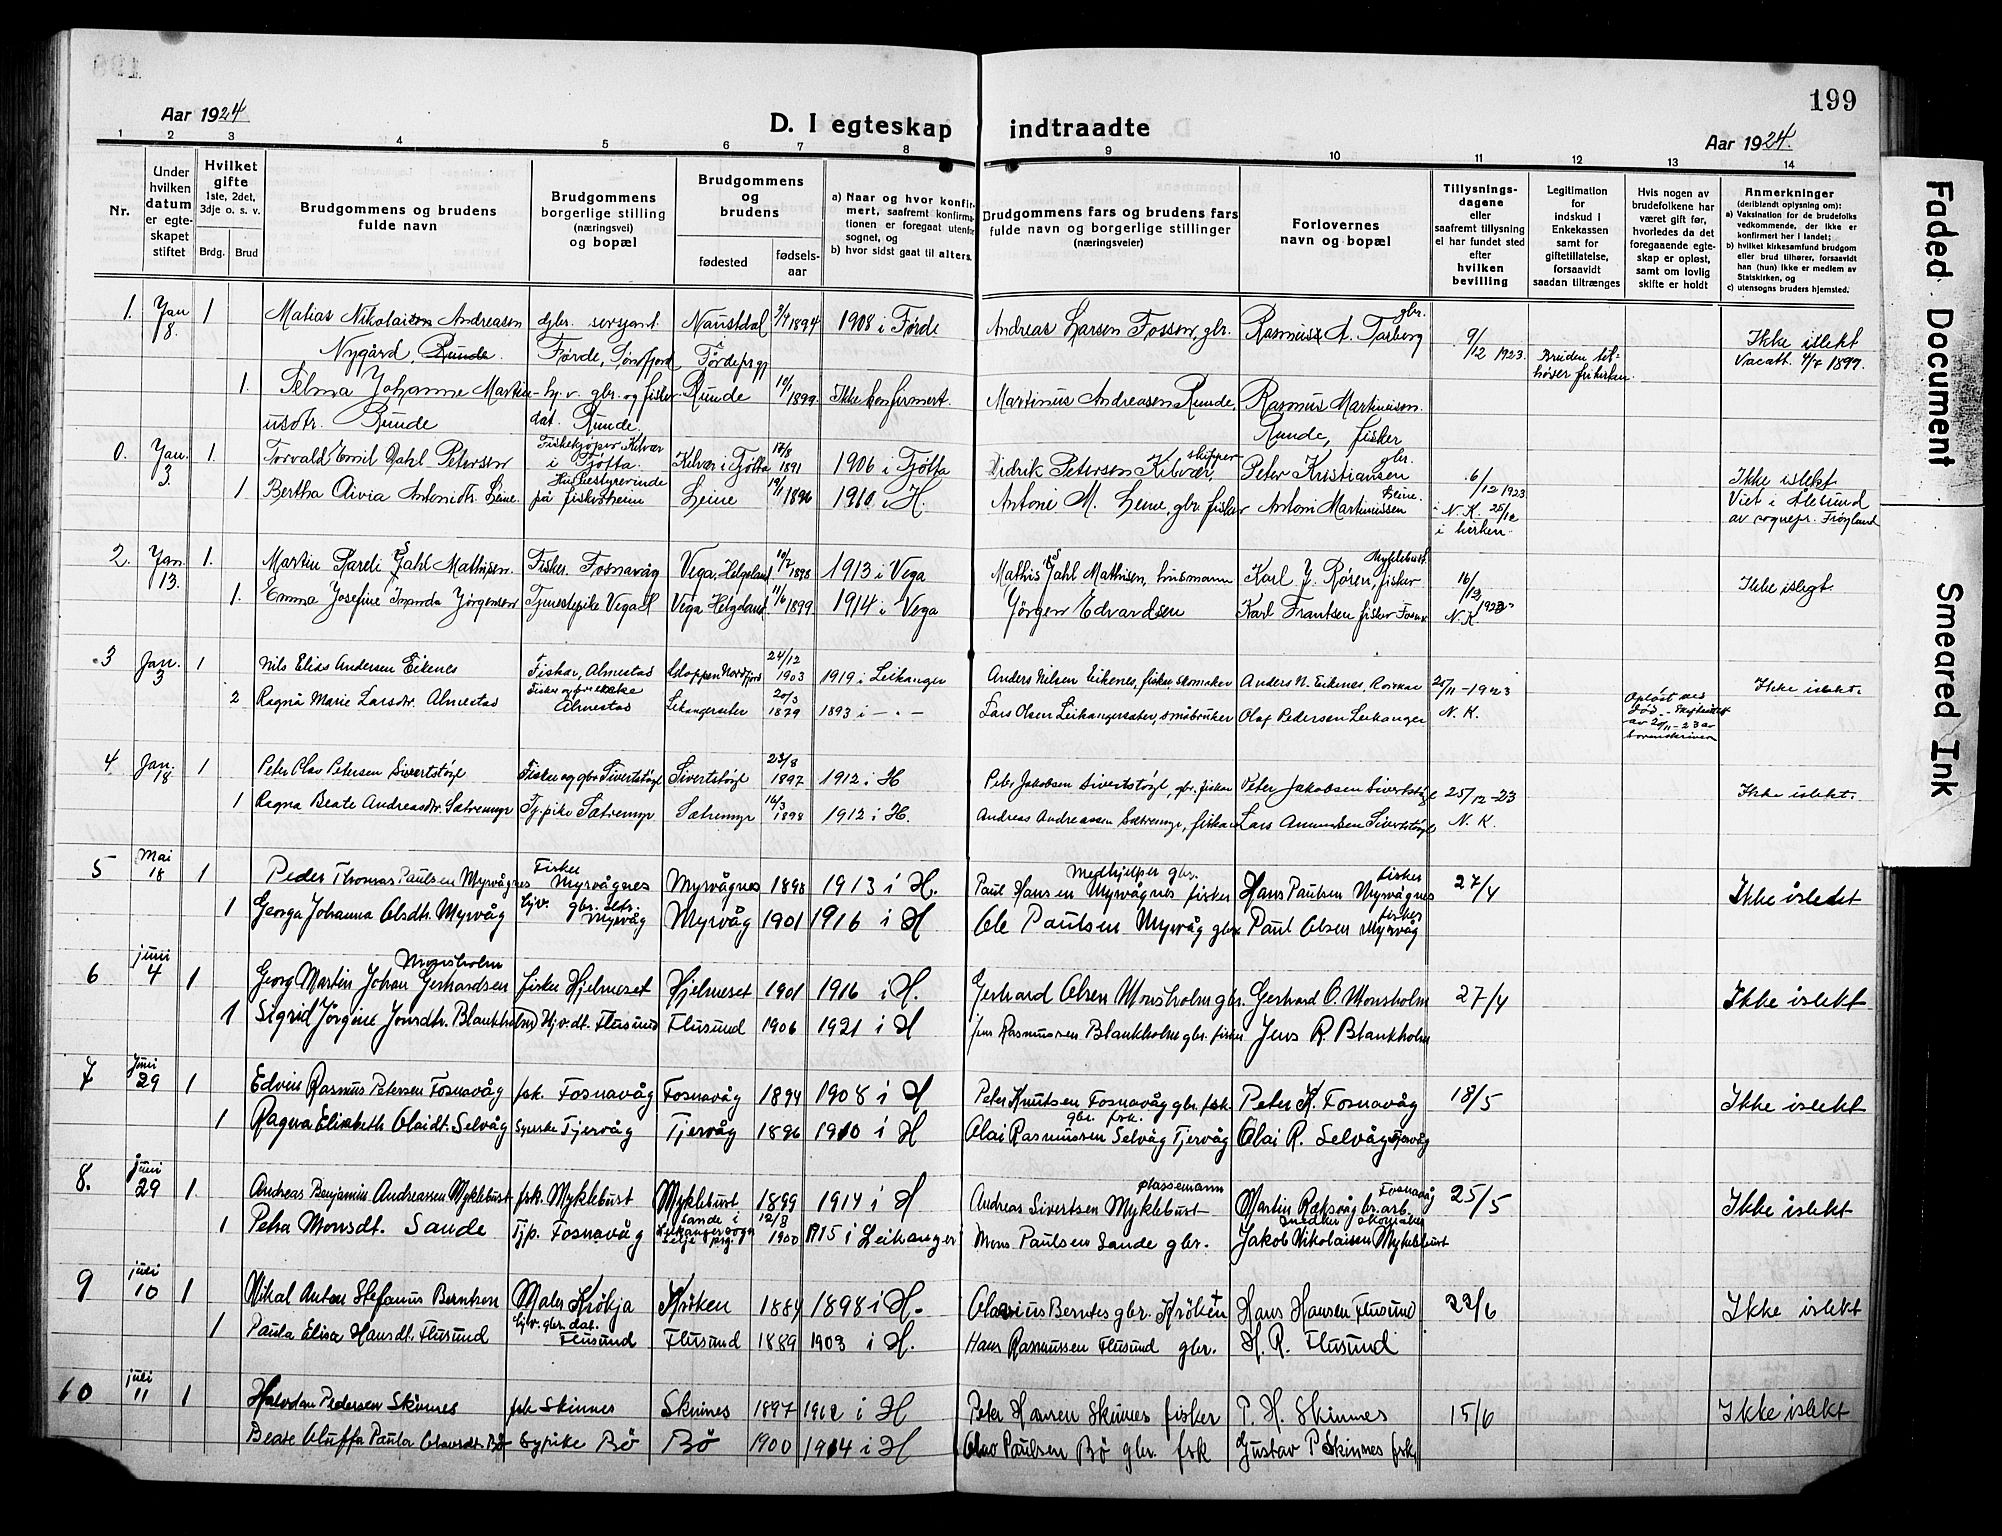 199
Aar 1924
D. I egteskap indtraadte
Aar 1924.
1 2 3 4 5 6 7 8 9 10 11 12 13 14
Nr.
Under hvilken datum er egteskapet stiftet
Hvilket gifte 1ste, 2det, 3dje o. s. v.
Brdg. Brud
Brudgommens og brudens fulde navn
Brudgommens borgerlige stilling (næringsvei) og bopæl
Brudgommens og brudens
fødested
fødselsaar
a) Naar og hvor konfirmert, saafremt konfirmationen er foregaat utenfor sognet, og
b) hvor sidst gaat til alters.
Brudgommens fars og brudens fars fulde navn og borgerlige stillinger (næringsveier)
Forlovernes navn og bopæl
Tillysningsdagene eller saafremt tillysning ei har fundet sted efter hvilken bevilling
Legitimation for indskud i Enkekassen samt for giftetillatelse, forsaavidt saadan tiltrænges
Hvis nogen av brudefolkene har været gift før, hvorledes da det foregaaende egteskap er opløst, samt om lovlig skifte er holdt
Anmerkninger (deriblandt oplysning om):
a) Vaksination for de brudefolks vedkommende, der ikke er konfirmert her i landet;
b) hvilket kirkesamfund brudgom eller brud tilhører, forsaavidt han (hun) ikke er medlem av Statskirken, og
c) utensogns bruders hjemsted.
1. Jan 8. 1 Matias Nikolaison Andreasen Nygård, Runde. gbr. sersjant. Førde, Sonfjord Naustdal Førdeprgj 1894 1908 i Førde Andreas Larsen Fossen, gbr. Rasmus A. Torberg gbr. 9/12 1923. Bruden tilhører frikirken Ikke islekt Vacatt. 4/7 1899.
1. Selma Johanne Martinusdtr. Runde hj.v. gbr. og fisker dat. Runde. Runde 19/1 1899 Ikke konfirmert. Martinus Andreasen Runde, Rasmus Martinusen. Runde, fisker
0. Jan. 3. 1. Torvald Emil Dahl Petersen Fiskekjøper Kilvær i Tjøtta. Kilvær i Tjøtta 17/8 1891 1906 i Tjøtta Didrik Petersen Kilvær, skipper Peter Kristiansen gbr. 6/12 1923 Ikke islekt
1 Bertha Oivia Antonidtr. Leine. Husbestyrerinde på fiskerheim Leine 19/1 1896 1910 i H. Antoni M. Leine, gbr. fisker Antoni Martinussen Leine. i N. K. 25/12 i kirken. Viet i Ålesund av sognepr. Frøyland
2. Jan. 13. 1. Martin Pardi Dahl Mathisen. Fisker. Fosnavåg Vega, Helgeland 19/2 1898 1913 i Vega Mathis Dahl Mathisen, husmann Karl J. Røren, fisker Myklebust. 16/12 1923 Ikke islegt
1. Emma Josefine Imanda Jørgensen Tjenestepike Vega Vega Helgeland 1/6 1899 1914 i Vega Jørgen Edvardsen Karl Frantsen fisker Fosnav N. K.
3 Jan. 3 1 Nils Elias Andersen Eikenes Fisker, Almestad Gloppen Nordfjord 24/12 1903 1919 i Leikanger Anders Nilsen Eikenes, fisker, skomaker Anders N. Eikenes, 25/11-1923 Ikke islekt.
2 Ragna Marie Larsdtr. Almestad Fisker og bruk enke Almestad Leikangersæter 20/3 1879 1893 i - " - Lars Olsen Leikangersæter, småbruker Olaf Pedersen Leikanger N. K. Opløst ved død. av 20/11-23 av sorenskriveren
4 Jan. 18 1 Peter Olav Petersen Sivertstøyl Fisker og gbr Sivertstøyl Sivertstøyl 23/8 1897 1912 i H Peter Jakobsen Sivertstøyl, gbr. fisker Peter Jakobsen Sivertstøyl 25/12-23 Ikke islekt.
1 Ragna Beate Andreasdtr. Sætremyr Tj. pike Sætremyr Sætremyr 16/3 1898 1912 i H. Andreas Andreassen Sætremyr, fisker Lars Amundsen Sivertstøyl N. K.
5 Mai 18 1 Peder Thomas Paulsen Myrvågnes Fisker Myrvågnes Myrvågnes 1898 1913 i H. Paul Hansen Myrvågnes fisker Medhjelper gbr. Hans Paulsen Myrvågnes fisker 27/4 Ikke islekt
1 Georga Johanna Olsdtr. Myrvåg hjv. gbr. Myrvåg Myrvåg 1901 1916 i H Ole Paulsen Myrvåg gbr. Paul Olsen Myrvåg fisker
6 juni 4 1 Georg Martin Johan Gerhardsen Monsholm fisker Hjelmeset Hjelmeset 1901 1916 i H. Gerhard Olsen Monsholm gbr. Gerhard O. Monsholm 27/4 Ikke islekt
1 Sigrid Jørgine Jensdtr. Blankholm Hjv. dt. Flusund Flusund 1906 1921 i H Jens Rasmussen Blankholm gbr. fisker Jens R. Blankholm
7 Juni 29 1 Edvin Rasmus Petersen Fosnavåg fsk. Fosnavåg Fosnavåg 1894 1908 i H Peter Knutsen Fosnavåg gbr. fsk. Peter K. Fosnavåg 18/5 Ikke islekt
1 Ragna Elisabeth Olaidt. Selvåg Syerske Tjervåg Tjervåg 1896 1910 i H Olai Rasmussen Selvåg Tjervåg gbr. fsk. Olai R. Selvåg Tjervåg
8. Juni 29 1. Andreas Benjamin Andreassen Myklebust fsk. Myklebust Myklebust 1899 1914 i H Andreas Sivertsen Myklebust plassemann Martin Raksvåg Fosnavåg gbr. arb. 25/5 Ikke islekt
1 Petra Monsdt. Sande Tjp. Fosnavåg Sande i Leikanger sogn Selje prg. 12/8 1900 1915 i Leikanger Mons Paulsen Sande gbr. Jakob Nikolaisen Myklebust skomaker
9 juli 10 1 Mikal Anton Stefanus Berntsen Maler Krøkja Krøken 1884 1898 i H. Olavius Berntes gbr. Krøken + Hans Hansen Flusund 22/6 Ikke islekt
1 Paula Elisa Hansdt. Flusund hjv. gbr. dat. Flusund Flusund 1889 1903 i H. Hans Rasmussen Flusund gbr. H. R. Flusund
10 juli 11 1 Halvdan Pedersen Skinnes fsk Skinnes Skinnes 1897 1912 i H Peter Hansen Skinnes fisker P. H. Skinnes 15/6 Ikke islekt
Beate Oluffa Paula Olavsdt. Bø Sypike Bø Bø 1900 1914 i H Olav Paulsen Bø gbr. fsk Gustav P Skinnes fsk.
Faded Document
Smeared Ink